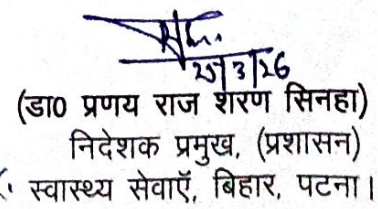 25/3/26
(डा0 प्रणय राज शरण सिनहा)
निदेशक प्रमुख, (प्रशासन)
स्वास्थ्य सेवाएँ, बिहार, पटना।